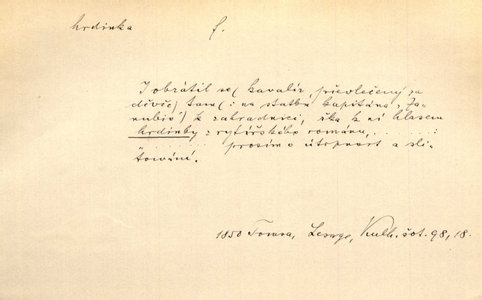 hrdinka f.
I obrátil se (kavalír, převlečený za
děvče) tam (: na statku kapitána,
k zahradnici, řka k ní hlasem
hrdinky z rytířského románu, . . . . .
. . . . . . . . prosím o útrpnost a sli-
tování.
1850 Tomsa, Lesage, Kulh. čst. 98, 18.